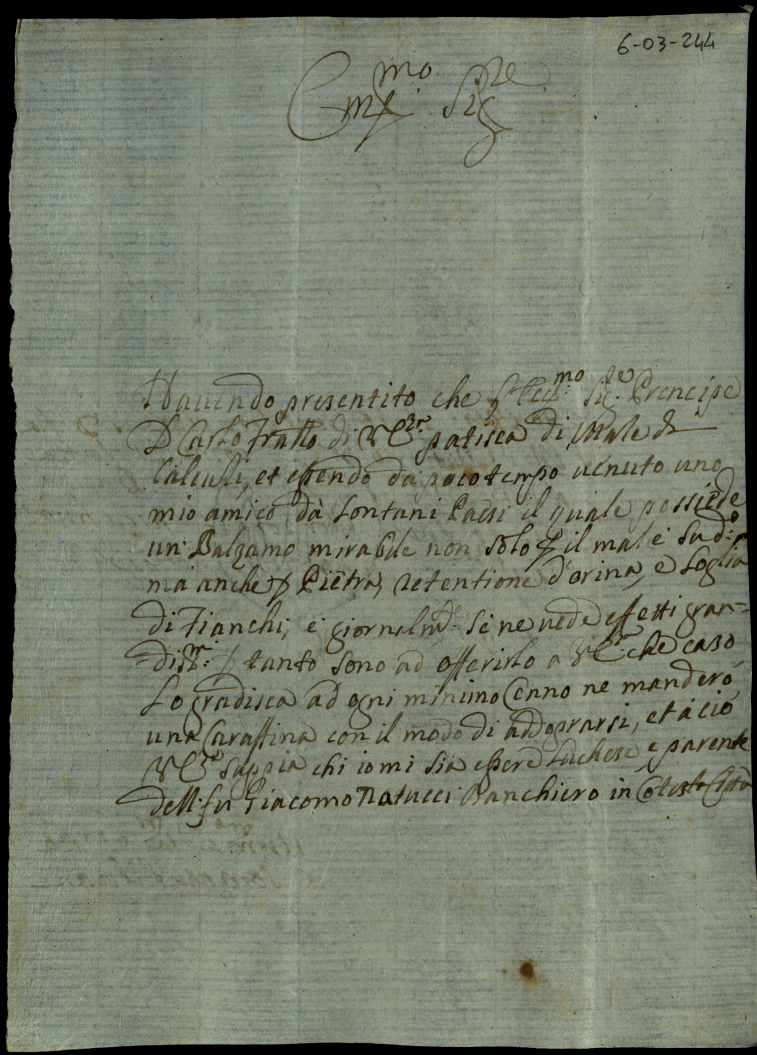 6-03-244
Em.mo Sig.re
Havendo presentito che l'Ecc.mo Sig.re Prencipe
D Carlo Fratto di V E. patisca di Male di
Calculi, et essendo da poco tempo venuto uno
mio amico da Lontani Paesi il quale possiede
un Balzamo mirabile non solo p il male Sud.o
ma anche p Pietra, retentione d'orina, e doglia
di Fianchi, e giornalm.te se ne vede effetti gran=
=diss.i p tanto sono ad offerirlo a V E. che caso
Lo gradisca ad ogni minimo Cenno ne manderò
una Caraffina con il modo di addoprarsi, et a ciò
V E. sappia chi io mi sia essere Luchese e parente
dell fu Giacomo Natucci Banchiero in Cotesta Città